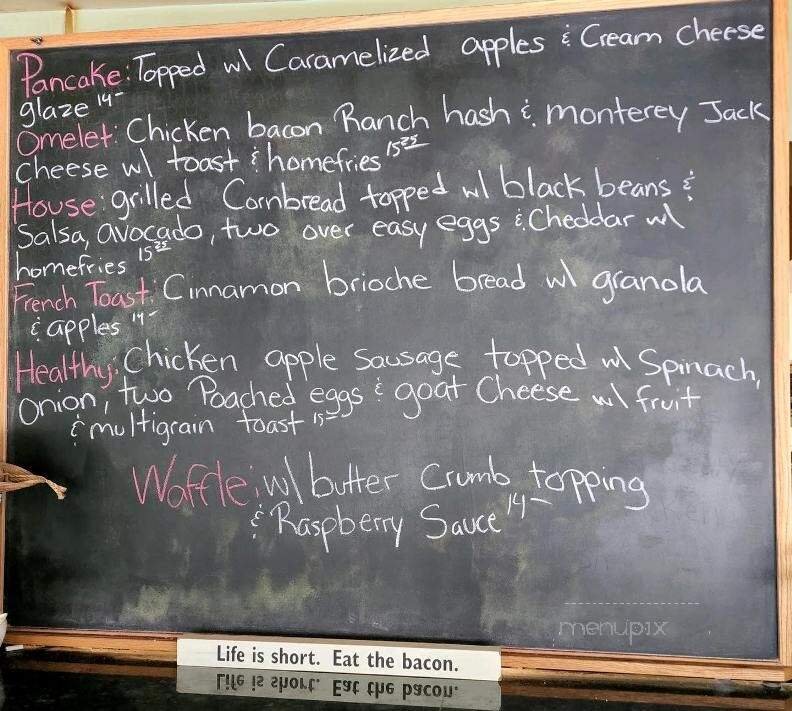 Pancake: Topped w/ Caramelized apples & Cream cheese
glaze 14-
Omelet: Chicken bacon Ranch hash & monterey Jack
Cheese w/ toast & homefries 15 25
House: grilled Cornbread topped w/ black beans &
Salsa, avocado, two over easy eggs & Cheddar w/
homefries 15 25
French Toast: Cinnamon brioche bread w/ granola
& apples 14-
Healthy: Chicken apple sausage topped w/ Spinach,
Onion, two Poached eggs & goat Cheese w/ fruit
& multigrain toast 15-
Waffle: w/ butter Crumb topping
& Raspberry Sauce 14-
menupix
Life is short. Eat the bacon.
Life is short. Eat the bacon.